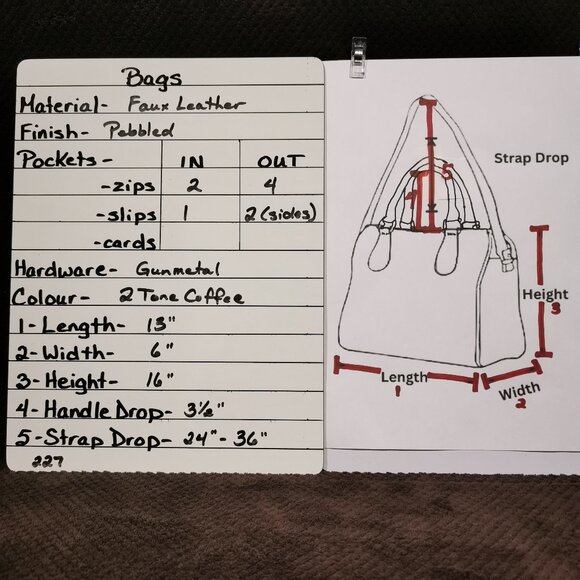 Bags
Material- Faux Leather
Finish- Pebbled
Pockets- IN OUT
-zips 2 4
-slips 1 2 (sides)
-cards
Hardware- Gunmetal
Colour- 2 Tone Coffee
1-Length- 13"
2-Width- 6"
3-Height- 16"
4-Handle Drop- 3½"
5-Strap Drop- 24"- 36"
227
Strap Drop
5
4
Height
3
Length
1
Width
2